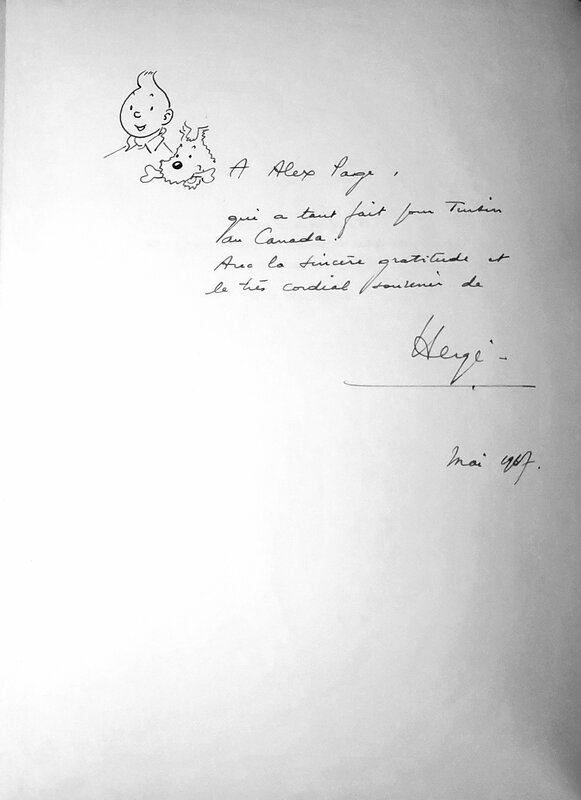 A Alex Page,
qui a tant fait pour Tintin
au Canada.
Avec la sincère gratitude et
le très cordial souvenir de
Hergé
Mai 1967.